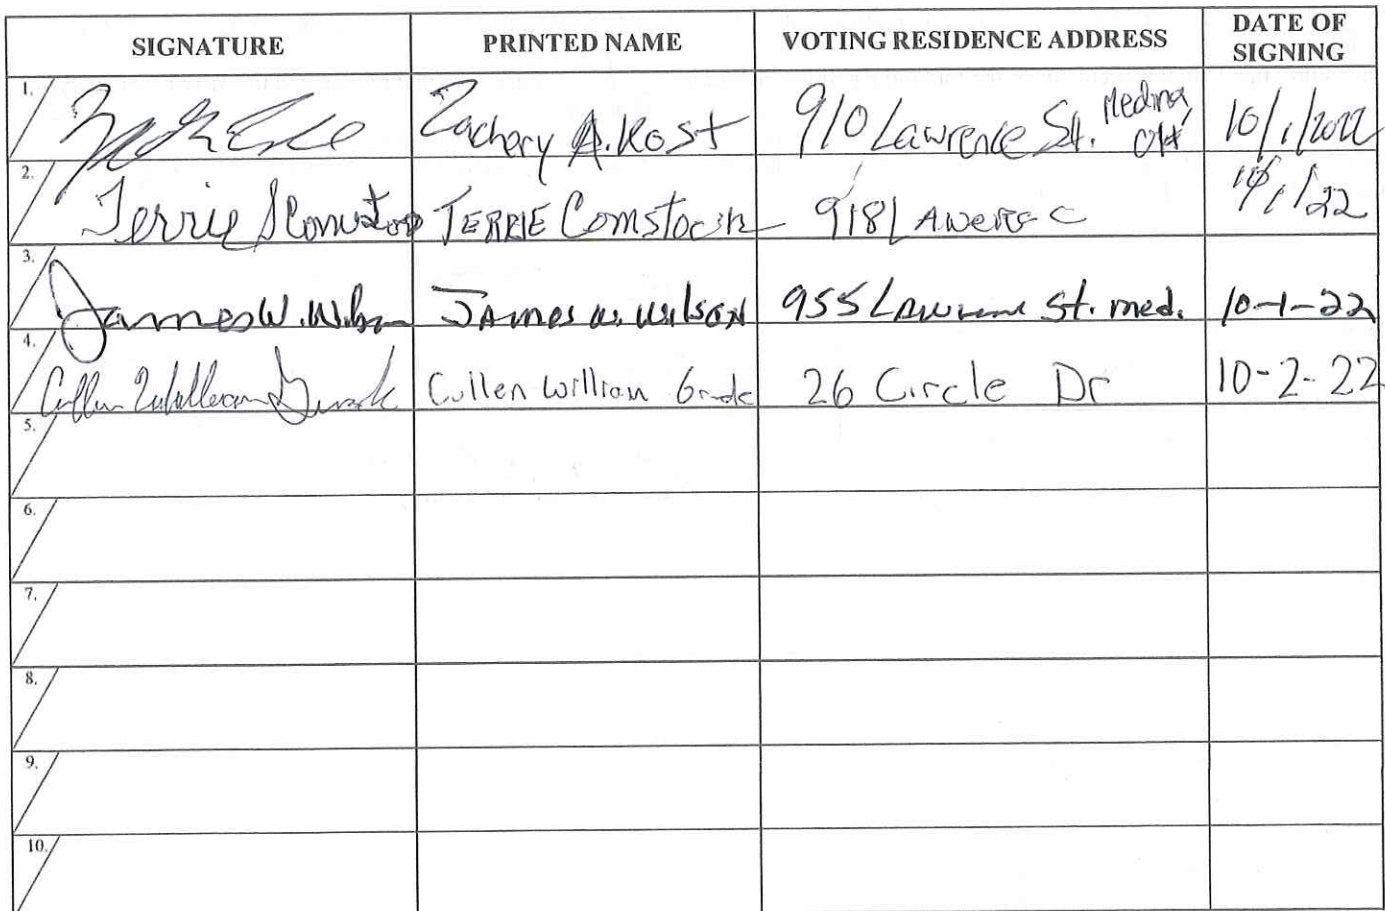 SIGNATURE PRINTED NAME VOTING RESIDENCE ADDRESS DATE OF SIGNING
1. Zachery A. Kost 910 Lawrence St. Medina, OH 10/1/2022
2. Terrie S Comstock TERRIE Comstock 918 10/1/22
3. James W. Wilson JAmes W. WilsoN 955 Lawrence St. med. 10-1-22
4. Cullen William Cullen William 26 Circle Dr 10-2-22
5.
6.
7.
8.
9.
10.